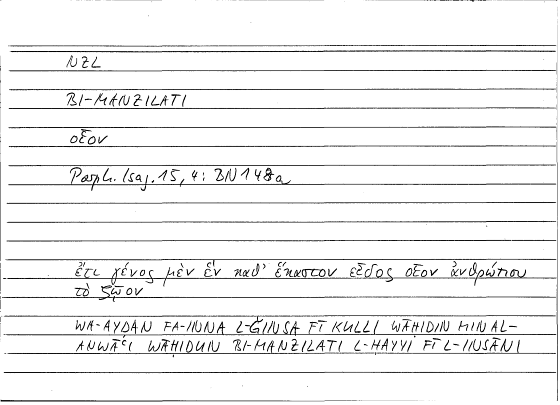 NZL
BI-MANZILATI
οἷον
Porph. Isag. 15, 4: BN 148a
ἔτι γένος μὲν ἓν καθ' ἕκαστον εἶδος οἷον ἀνθρώπου
τὸ ζῷον
WA-AYḌAN FA-INNA L-ǦINSA FĪ KULLI WĀḤIDIN MIN AL-
ANWĀʿI WĀḤIDUN BI-MANZILATI L-ḤAYYI FĪ L-INSĀNI